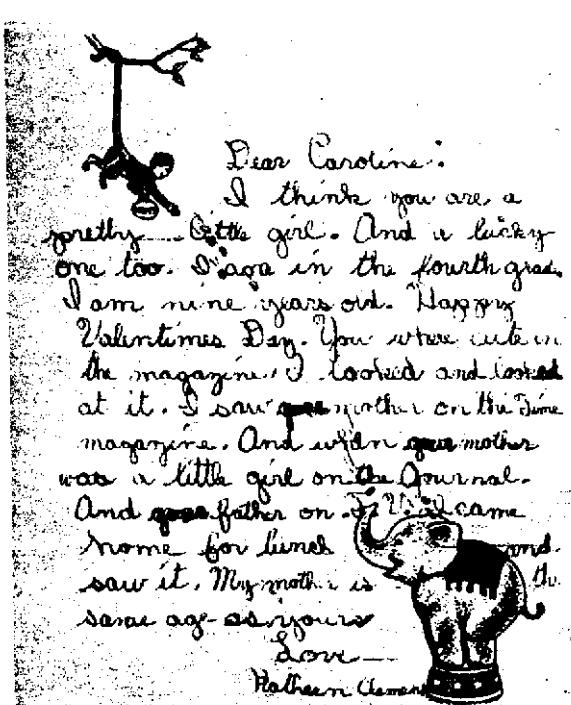 Dear Caroline:
I think you are a
pretty little girl. And a lucky
one too. I am in the fourth grade.
I am nine years old. Happy
Valentimes Day. You where cute in
the magazine. I looked and looked
at it. I saw your mother on the Time
magazine. And when your mother
was a little girl on the Journal.
And your father on. I came
home for lunch and
saw it. My mother is the
same age as yours
Love
Kathleen